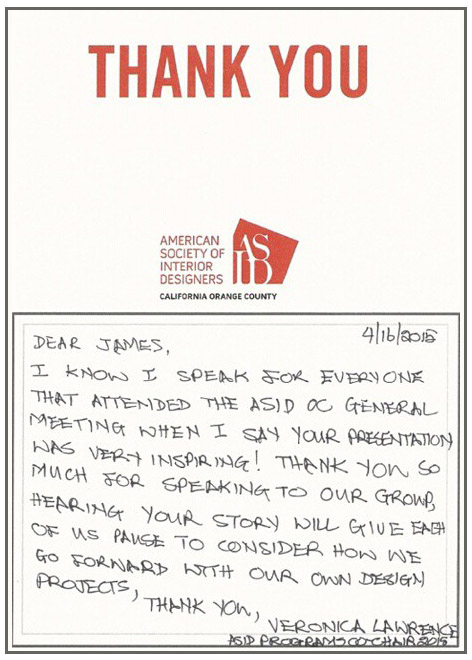 THANK YOU
AMERICAN
SOCIETY OF
INTERIOR
DESIGNERS
ASID
CALIFORNIA ORANGE COUNTY
4/16/2015
DEAR JAMES,
I KNOW I SPEAK FOR EVERYONE
THAT ATTENDED THE ASID OC GENERAL
MEETING WHEN I SAY YOUR PRESENTATION
WAS VERY INSPIRING! THANK YOU SO
MUCH FOR SPEAKING TO OUR GROUP,
HEARING YOUR STORY WILL GIVE EACH
OF US PAUSE TO CONSIDER HOW WE
GO FORWARD WITH OUR OWN DESIGN
PROJECTS,
THANK YOU,
VERONICA LAWRENCE
ASID PROGRAMS CO-CHAIR 2015